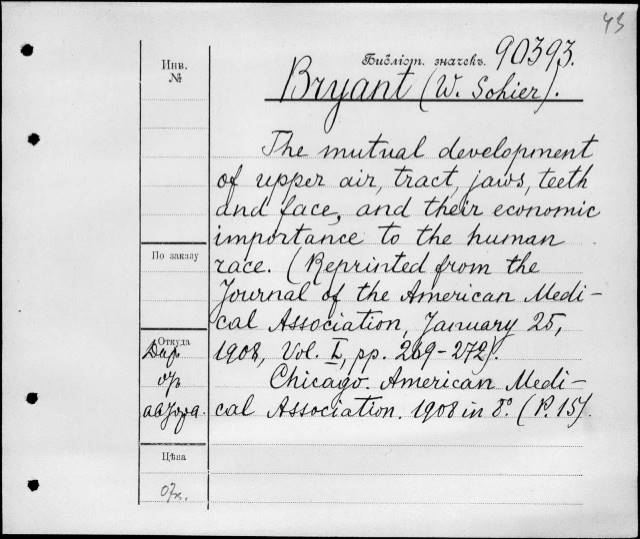 43
Инв.
№
Библіот. значекъ. 90393.
Bryant (W. Sohier).
The mutual development
of upper air, tract, jaws, teeth
and face, and their economic
importance to the human
По заказу
race. (Reprinted from the
Journal of the American Medi-
cal Association, January 25,
Откуда
Дар
1908, Vol. L, pp. 269-272).
от
Chicago. American Medi-
автора.
cal Association. 1908 in 8°. (P. 15).
Цѣна